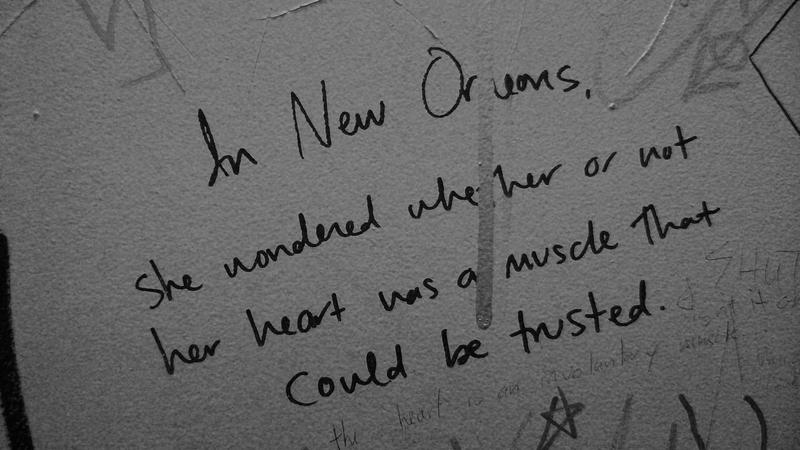 In New Orleans,
She wondered whether or not
her heart was a muscle that
could be trusted.
SHUT
the heart is an involuntary muscle